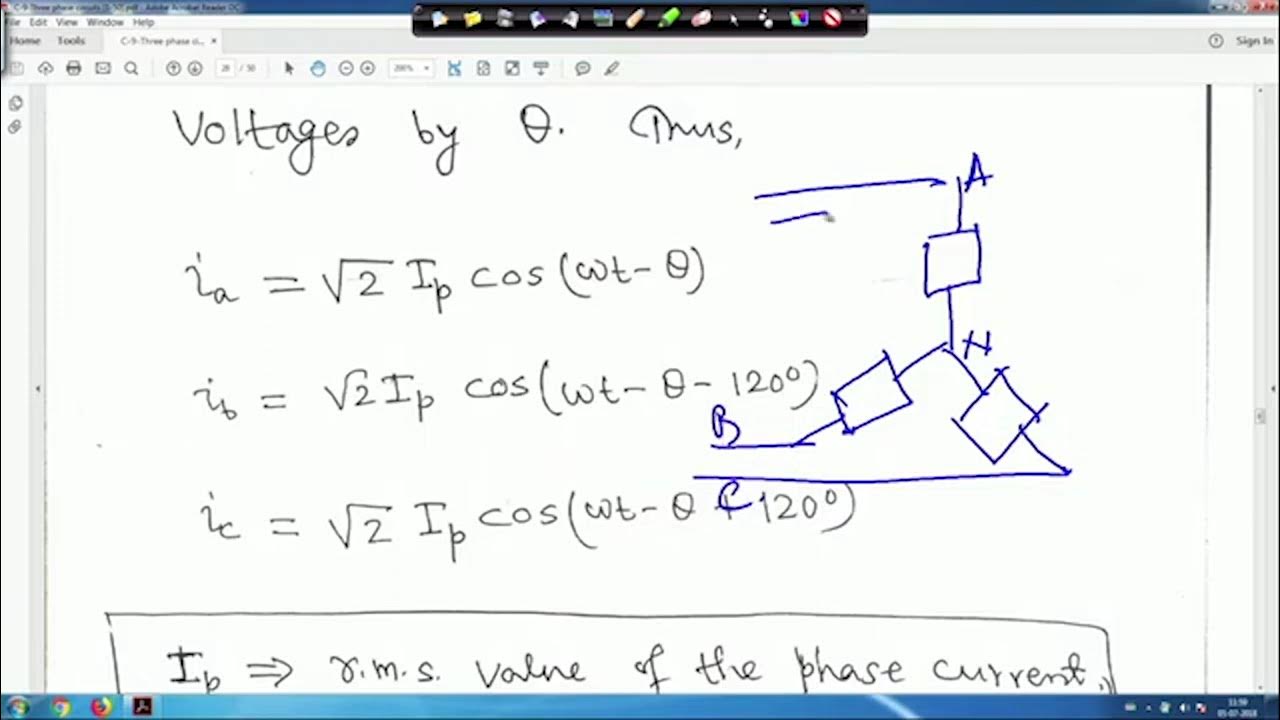 C-9-Three phase circuits (1-50).pdf - Adobe Acrobat Reader DC
File Edit View Window Help
Home Tools C-9-Three phase ci... × Sign In
28 / 50 200%
Voltages by θ. Thus,
A
i_a = √2 I_p cos(ωt - θ)
N
i_b = √2 I_p cos(ωt - θ - 120°)
B
C
i_c = √2 I_p cos(ωt - θ + 120°)
I_p ⇒ r.m.s. value of the phase current.
11:59
05-07-2018